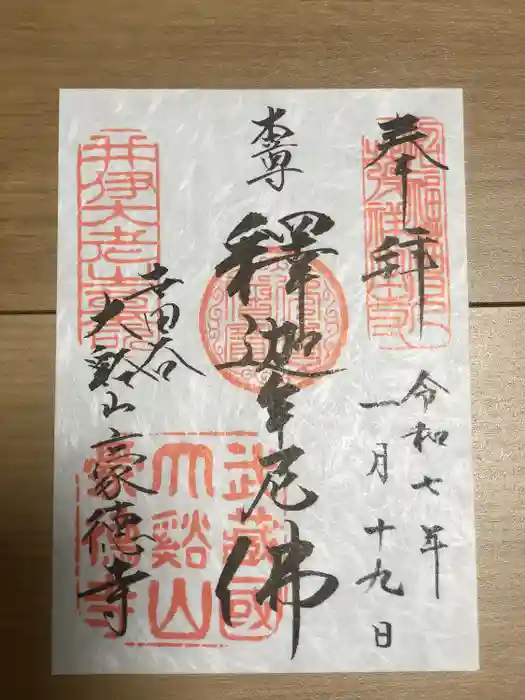 奉拝
令和七年
一月十九日
本尊
釋迦牟尼佛
世田谷
大谿山豪徳寺
招福猫児発祥之寺
井伊大老墓所
武蔵國
大谿山
豪徳寺